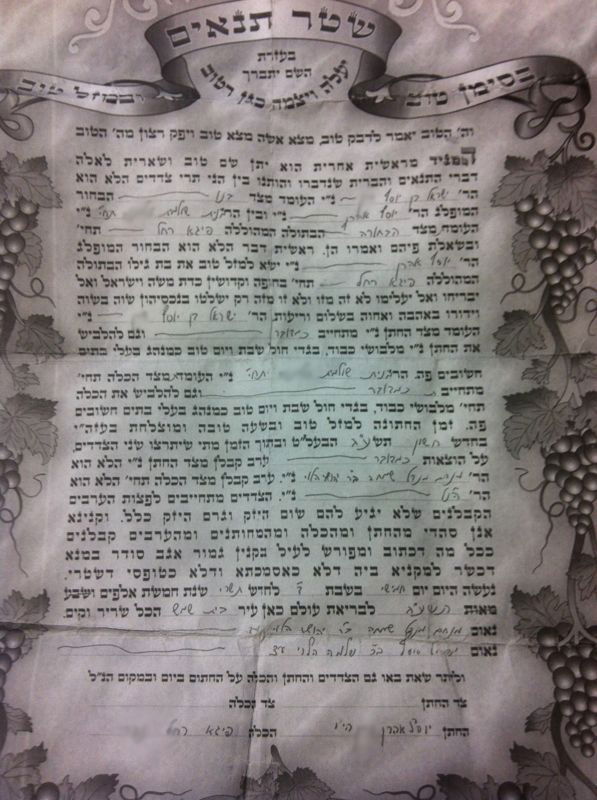 שטר תנאים
בעזרת
השם יתברך
יעלה ויצמח כגן רטוב
בסימן טוב
ובמזל טוב
וה' הטוב יאמר לדבק טוב, מצא אשה מצא טוב ויפק רצון מה' הטוב
המגיד מראשית אחרית הוא יתן שם טוב ושארית לאלה
דברי התנאים והברית שנדברו והותנו בין הני תרי צדדים הלא הוא
הר' ישראל בן יוסף נ"י העומד מצד בנו הבחור
המופלג הר' יוסף אהרן נ"י ובין הרבנית שולמית תחי' נ"י
העומד מצד הבתולה המהוללה פיגא רחל תחי'
ובשאלת פיהם ואמרו הן. ראשית דבר הלא הוא הבחור המופלג
הר' יוסף אהרן נ"י ישא למזל טוב את בת גילו הבתולה
המהוללה פיגא רחל תחי' בחופה וקדושין כדת משה וישראל ואל
יבריחו ואל יעלימו לא זה מזו ולא זו מזה רק ישלטו בנכסיהון שוה בשוה
וידורו באהבה ואחוה בשלום וריעות. הר' ישראל בן יוסף נ"י
העומד מצד החתן נ"י מתחייב כמדובר וגם להלביש
את החתן נ"י מלבושי כבוד, בגדי חול שבת ויום טוב כמנהג בעלי בתים
חשובים פה. הרבנית שולמית תחי' נ"י העומד מצד הכלה תחי'
מתחייב כמדובר וגם להלביש את הכלה
תחי' מלבושי כבוד, בגדי חול שבת ויום טוב כמנהג בעלי בתים חשובים
פה. זמן החתונה למזל טוב ובשעה טובה ומוצלחת בעזה"י
בחדש חשון תשע"ב הבעל"ט ובתוך הזמן מתי שיתרצו שני הצדדים,
על הוצאות כמדובר ערב קבלן מצד החתן נ"י הלא הוא
הר' מנחם מנדל שמחה ב"ר נ"י. ערב קבלן מצד הכלה תחי' הלא הוא
הר' הנ"ל נ"י. הצדדים מתחייבים לפצות הערבים
הקבלנים שלא יגיע להם שום היזק וגרם היזק כלל. וקנינא
אנן סהדי מהחתן ומהכלה ומהמחותנים ומהערבים קבלנים
ככל מה דכתוב ומפורש לעיל בקנין גמור אגב סודר במנא
דכשר למקניא ביה דלא כאסמכתא ודלא כטופסי דשטרי.
נעשה היום יום חמישי בשבת ל' לחדש תשרי שנת חמשת אלפים ושבע
מאות לבריאת עולם כאן עיר בית שמש הכל שריר וקים.
נאום מנחם מנדל שמחה ב"ר
נאום יוסף ב"ר שלמה הלוי עד
וליתר שאת באו גם הצדדים והחתן והכלה על החתום ביום ובמקום הנ"ל
צד החתן צד הכלה
החתן יוסף אהרן הי"ו הכלה פיגא רחל